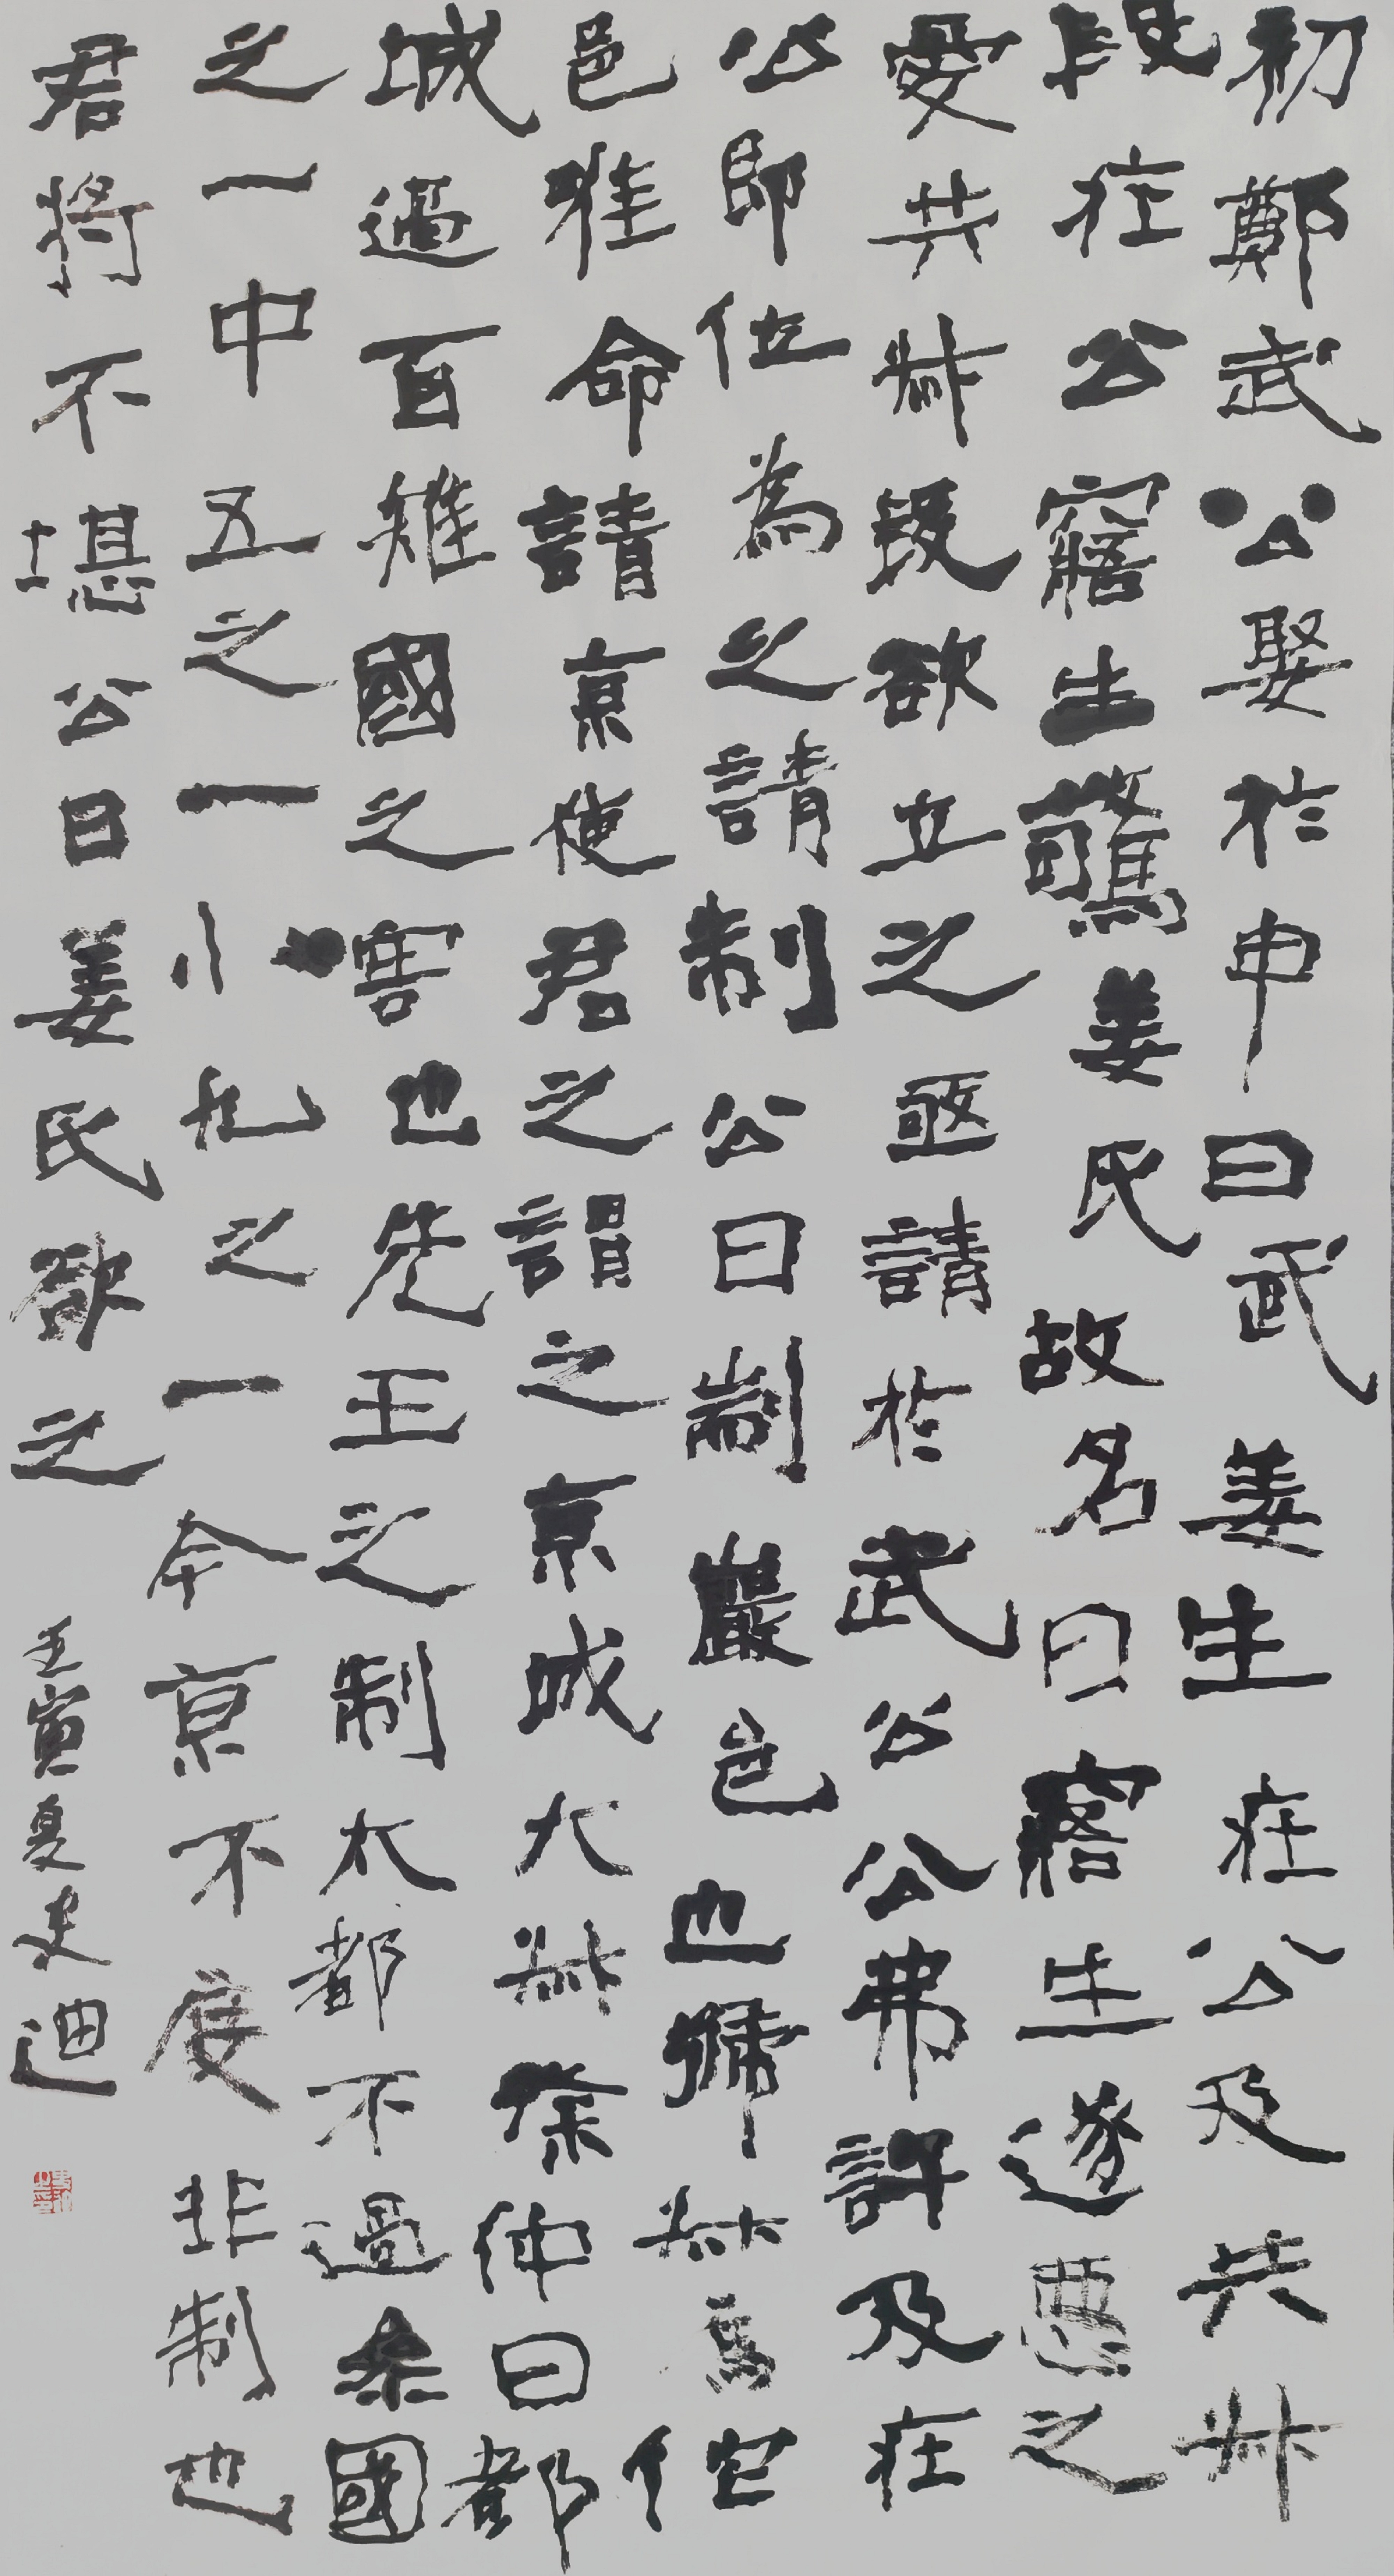 初鄭武公娶於申曰武姜生庄公及共叔
段庄公寤生驚姜氏故名曰寤生遂惡之
愛共叔段欲立之亟請於武公公弗許及庄
公即位為之請制公曰制巖邑也虢叔焉佗
邑唯命請京使君之謂之京城大叔祭仲曰都
城過百雉國之害也先王之制大都不過叅國
之一中五之一小九之一今京不度非制也
君將不堪公曰姜氏欲之
壬寅夏史迪